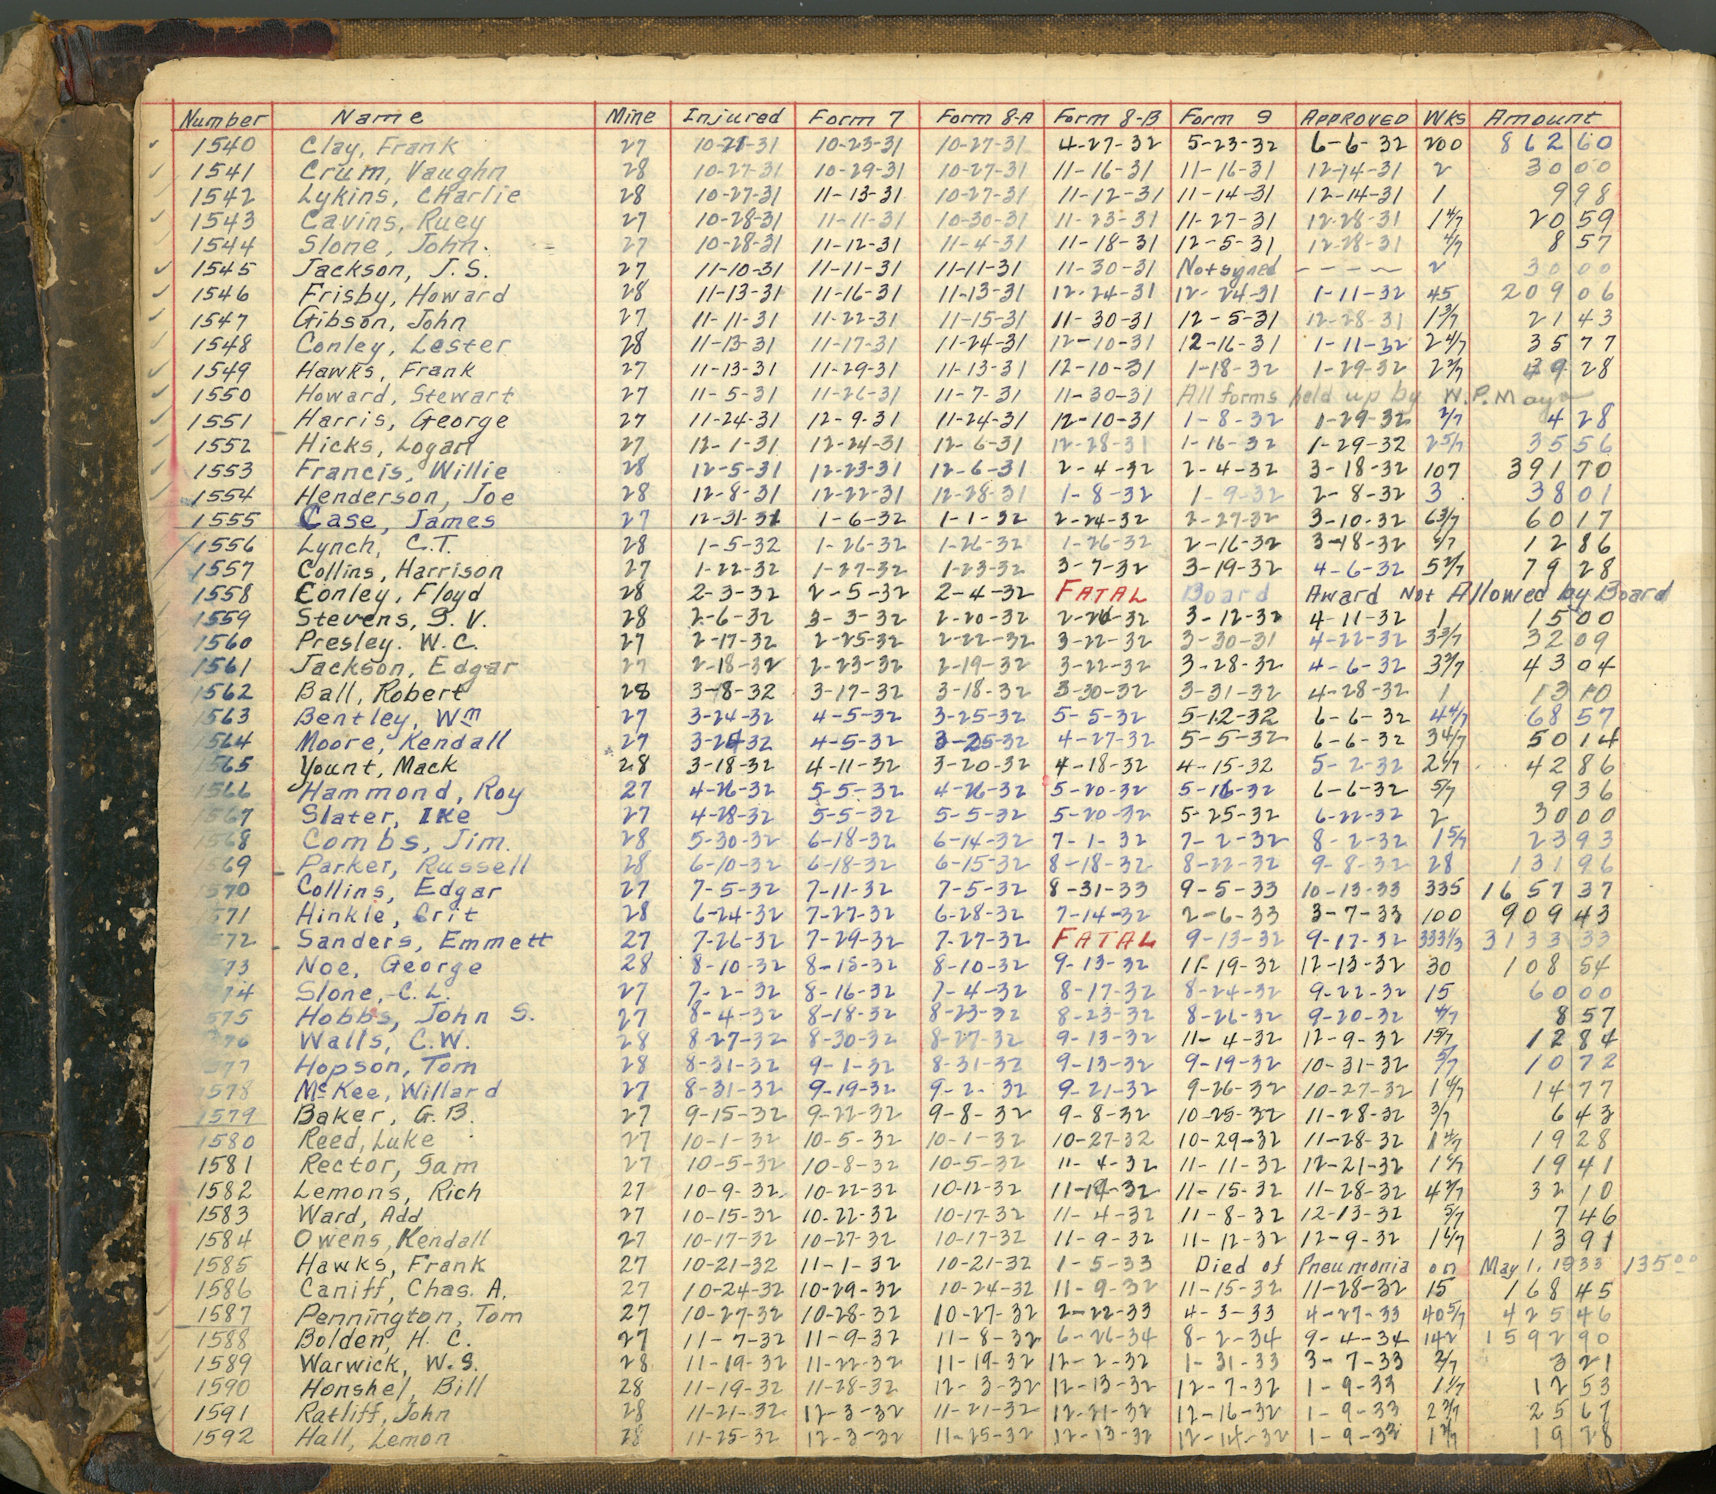 Number Name Mine Injured Form 7 Form 8-A Form 8-B Form 9 APPROVED Wks Amount
1540 Clay, Frank 27 10-21-31 10-23-31 10-27-31 4-27-32 5-23-32 6-6-32 200 862 60
1541 Crum, Vaughn 28 10-27-31 10-29-31 10-27-31 11-16-31 11-16-31 12-14-31 2 30 00
1542 Lykins, CHarlie 28 10-27-31 11-13-31 10-27-31 11-12-31 11-14-31 12-14-31 1 9 98
1543 Cavins, Ruey 27 10-28-31 11-11-31 10-30-31 11-23-31 11-27-31 12-28-31 1 4/7 20 59
1544 Slone, John. 27 10-28-31 11-12-31 11-4-31 11-18-31 12-5-31 12-28-31 4/7 8 57
1545 Jackson, J.S. 27 11-10-31 11-11-31 11-11-31 11-30-31 Not signed - - - - 2 30 00
1546 Frisby, Howard 28 11-13-31 11-16-31 11-13-31 12-24-31 12-24-31 1-11-32 45 209 06
1547 Gibson, John 27 11-11-31 11-22-31 11-15-31 11-30-31 12-5-31 12-28-31 1 3/7 21 43
1548 Conley, Lester 28 11-13-31 11-17-31 11-24-31 12-10-31 12-16-31 1-11-32 2 4/7 35 77
1549 Hawks, Frank 27 11-13-31 11-29-31 11-13-31 12-10-31 1-18-32 1-29-32 2 39 28
1550 Howard, Stewart 27 11-5-31 11-26-31 11-7-31 11-30-31 All forms held up by W.P. Mayo
1551 Harris, George 27 11-24-31 12-9-31 11-24-31 12-10-31 1-8-32 1-29-32 2/7 4 28
1552 Hicks, Logan 27 12-1-31 12-24-31 12-6-31 12-28-31 1-16-32 1-29-32 2 5/7 35 56
1553 Francis, Willie 28 12-5-31 12-23-31 12-6-31 2-4-32 2-4-32 3-18-32 107 391 70
1554 Henderson, Joe 28 12-8-31 12-22-31 12-28-31 1-8-32 1-9-32 2-8-32 3 38 01
1555 Case, James 27 12-31-31 1-6-32 1-1-32 2-24-32 2-27-32 3-10-32 6 3/7 60 17
1556 Lynch, C.T. 28 1-5-32 1-26-32 1-26-32 1-26-32 2-16-32 3-18-32 6/7 12 86
1557 Collins, Harrison 27 1-22-32 1-27-32 1-23-32 3-7-32 3-19-32 4-6-32 5 2/7 79 28
1558 Conley, Floyd 28 2-3-32 2-5-32 2-4-32 FATAL Board Award Not Allowed by Board
1559 Stevens, S.V. 28 2-6-32 3-3-32 2-20-32 3-12-32 4-11-32 1 15 00
1560 Presley. W.C. 27 2-17-32 2-25-32 2-22-32 3-22-32 3-30-31 4-22-32 3 3/7 32 09
1561 Jackson, Edgar 27 2-18-32 2-23-32 2-19-32 3-22-32 3-28-32 4-6-32 3 43 04
1562 Ball, Robert 28 3-8-32 3-17-32 3-18-32 3-30-32 3-31-32 4-28-32 1 13 10
1563 Bentley, Wm 27 3-24-32 4-5-32 3-25-32 5-5-32 5-12-32 6-6-32 4 4/7 68 57
1564 Moore, Kendall 27 4-5-32 3-25-32 4-27-32 5-5-32 6-6-32 3 4/7 50 14
1565 Yount, Mack 28 3-18-32 4-11-32 3-20-32 4-18-32 4-15-32 5-2-32 2 6/7 42 86
1566 Hammond, Roy 27 4-26-32 5-5-32 4-26-32 5-20-32 5-16-32 6-6-32 5/7 9 36
1567 Slater, IKe 27 4-28-32 5-5-32 5-5-32 5-20-32 5-25-32 6-22-32 2 30 00
1568 Combs, Jim. 28 5-30-32 6-18-32 6-14-32 7-1-32 7-2-32 8-2-32 1 5/7 23 93
1569 Parker, Russell 28 6-10-32 6-18-32 6-15-32 8-18-32 8-22-32 9-8-32 28 131 96
1570 Collins, Edgar 27 7-5-32 7-11-32 7-5-32 8-31-33 9-5-33 10-13-33 335 1657 37
1571 Hinkle, Crit 28 6-24-32 7-27-32 6-28-32 7-14-32 2-6-33 3-7-33 100 909 43
1572 Sanders, Emmett 27 7-26-32 7-29-32 7-27-32 FATAL 9-13-32 9-17-32 333 1/3 3133 33
573 Noe, George 28 8-10-32 8-15-32 8-10-32 9-13-32 11-19-32 12-13-32 30 108 54
574 Slone, C.L. 27 7-2-32 8-16-32 7-4-32 8-17-32 8-24-32 9-22-32 15 60 00
575 Hobbs, John S. 27 8-4-32 8-18-32 8-23-32 8-23-32 8-26-32 9-20-32 4/7 8 57
576 Walls, C.W. 28 8-27-32 8-30-32 8-27-32 9-13-32 11-4-32 12-9-32 1 5/7 12 84
577 Hopson, Tom 28 8-31-32 9-1-32 8-31-32 9-13-32 9-19-32 10-31-32 5/7 10 72
1578 McKee, Willard 27 8-31-32 9-19-32 9-2-32 9-21-32 9-26-32 10-27-32 1 4/7 14 77
1579 Baker, G.B. 27 9-15-32 9-22-32 9-8-32 9-8-32 10-25-32 11-28-32 3/7 6 43
1580 Reed, Luke 27 10-1-32 10-5-32 10-1-32 10-27-32 10-29-32 11-28-32 1 19 28
1581 Rector, Sam 27 10-5-32 10-8-32 10-5-32 11-4-32 11-11-32 12-21-32 1 19 41
1582 Lemons, Rich 27 10-9-32 10-22-32 10-12-32 11-14-32 11-15-32 11-28-32 4 2/7 32 10
1583 Ward, Add 27 10-15-32 10-22-32 10-17-32 11-4-32 11-8-32 12-13-32 5/7 7 46
1584 Owens, Kendall 27 10-17-32 10-27-32 10-17-32 11-9-32 11-12-32 12-9-32 1 6/7 13 91
1585 Hawks, Frank 27 10-21-32 11-1-32 10-21-32 1-5-33 Died of Pneumonia on May 1, 1933 135 00
1586 Caniff, Chas. A. 27 10-24-32 10-29-32 10-24-32 11-9-32 11-15-32 11-28-32 15 168 45
1587 Pennington, Tom 27 10-27-32 10-28-32 10-27-32 2-22-33 4-3-33 4-27-33 40 5/7 425 46
1588 Bolden, H.C. 27 11-7-32 11-9-32 11-8-32 6-26-34 8-2-34 9-4-34 142 1592 90
1589 Warwick, W.S. 28 11-19-32 11-22-32 11-19-32 12-2-32 1-31-33 3-7-33 2/7 3 21
1590 Honshel, Bill 28 11-19-32 11-28-32 12-3-32 12-13-32 12-7-32 1-9-33 1 12 53
1591 Ratliff, John 28 11-21-32 12-3-32 11-21-32 12-21-32 12-16-32 1-9-33 2 25 67
1592 Hall, Lemon 28 11-25-32 12-3-32 11-25-32 12-13-32 12-14-32 1-9-33 1 19 28